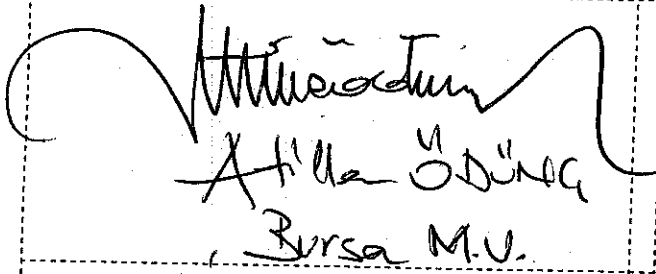 Atilla ÖDÜNÇ
Bursa M.V.